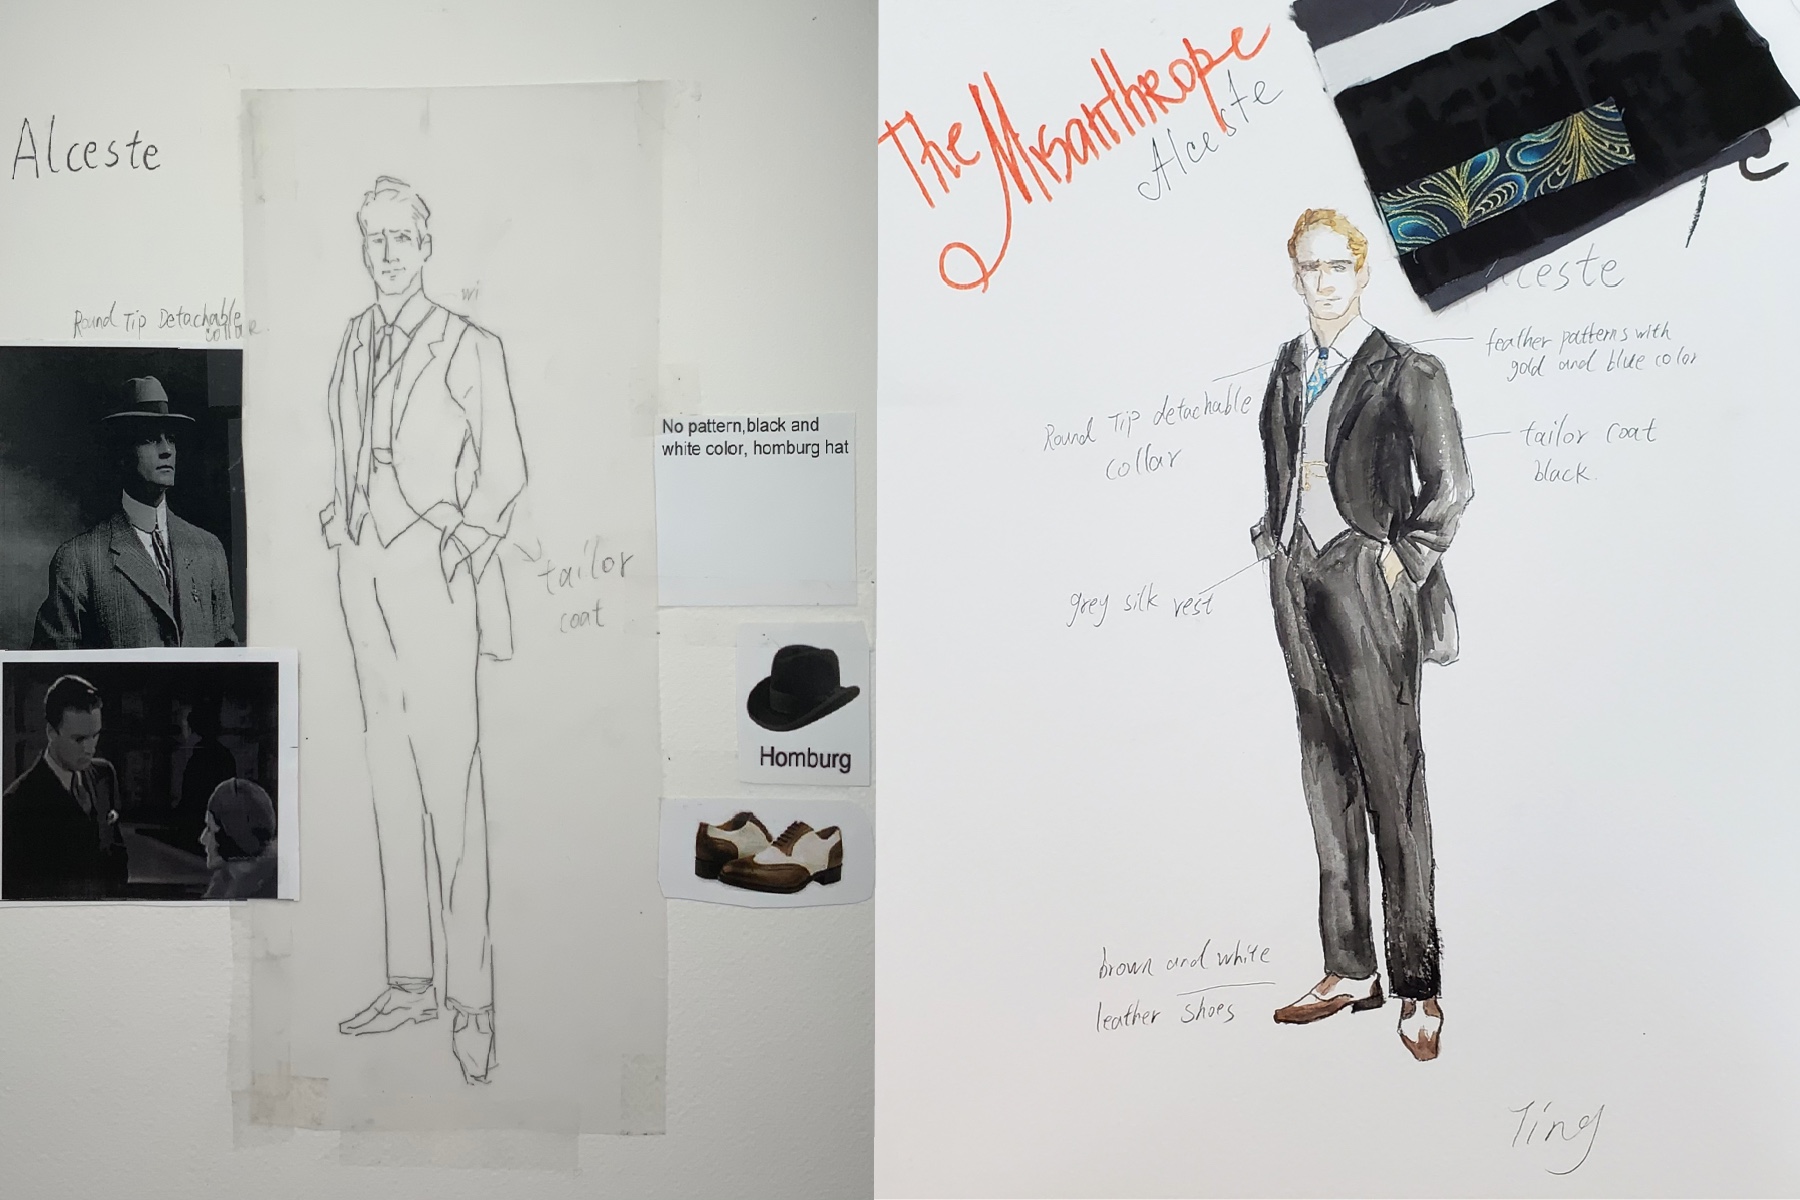 Alceste
Round Tip Detachable
collar
wi
tailor
coat
No pattern,black and
white color, homburg hat
Homburg
The Misanthrope
Alceste
e
lceste
feather patterns with
gold and blue color
Round Tip detachable
collar
tailor coat
black.
grey silk vest
brown and white
leather shoes
Ting